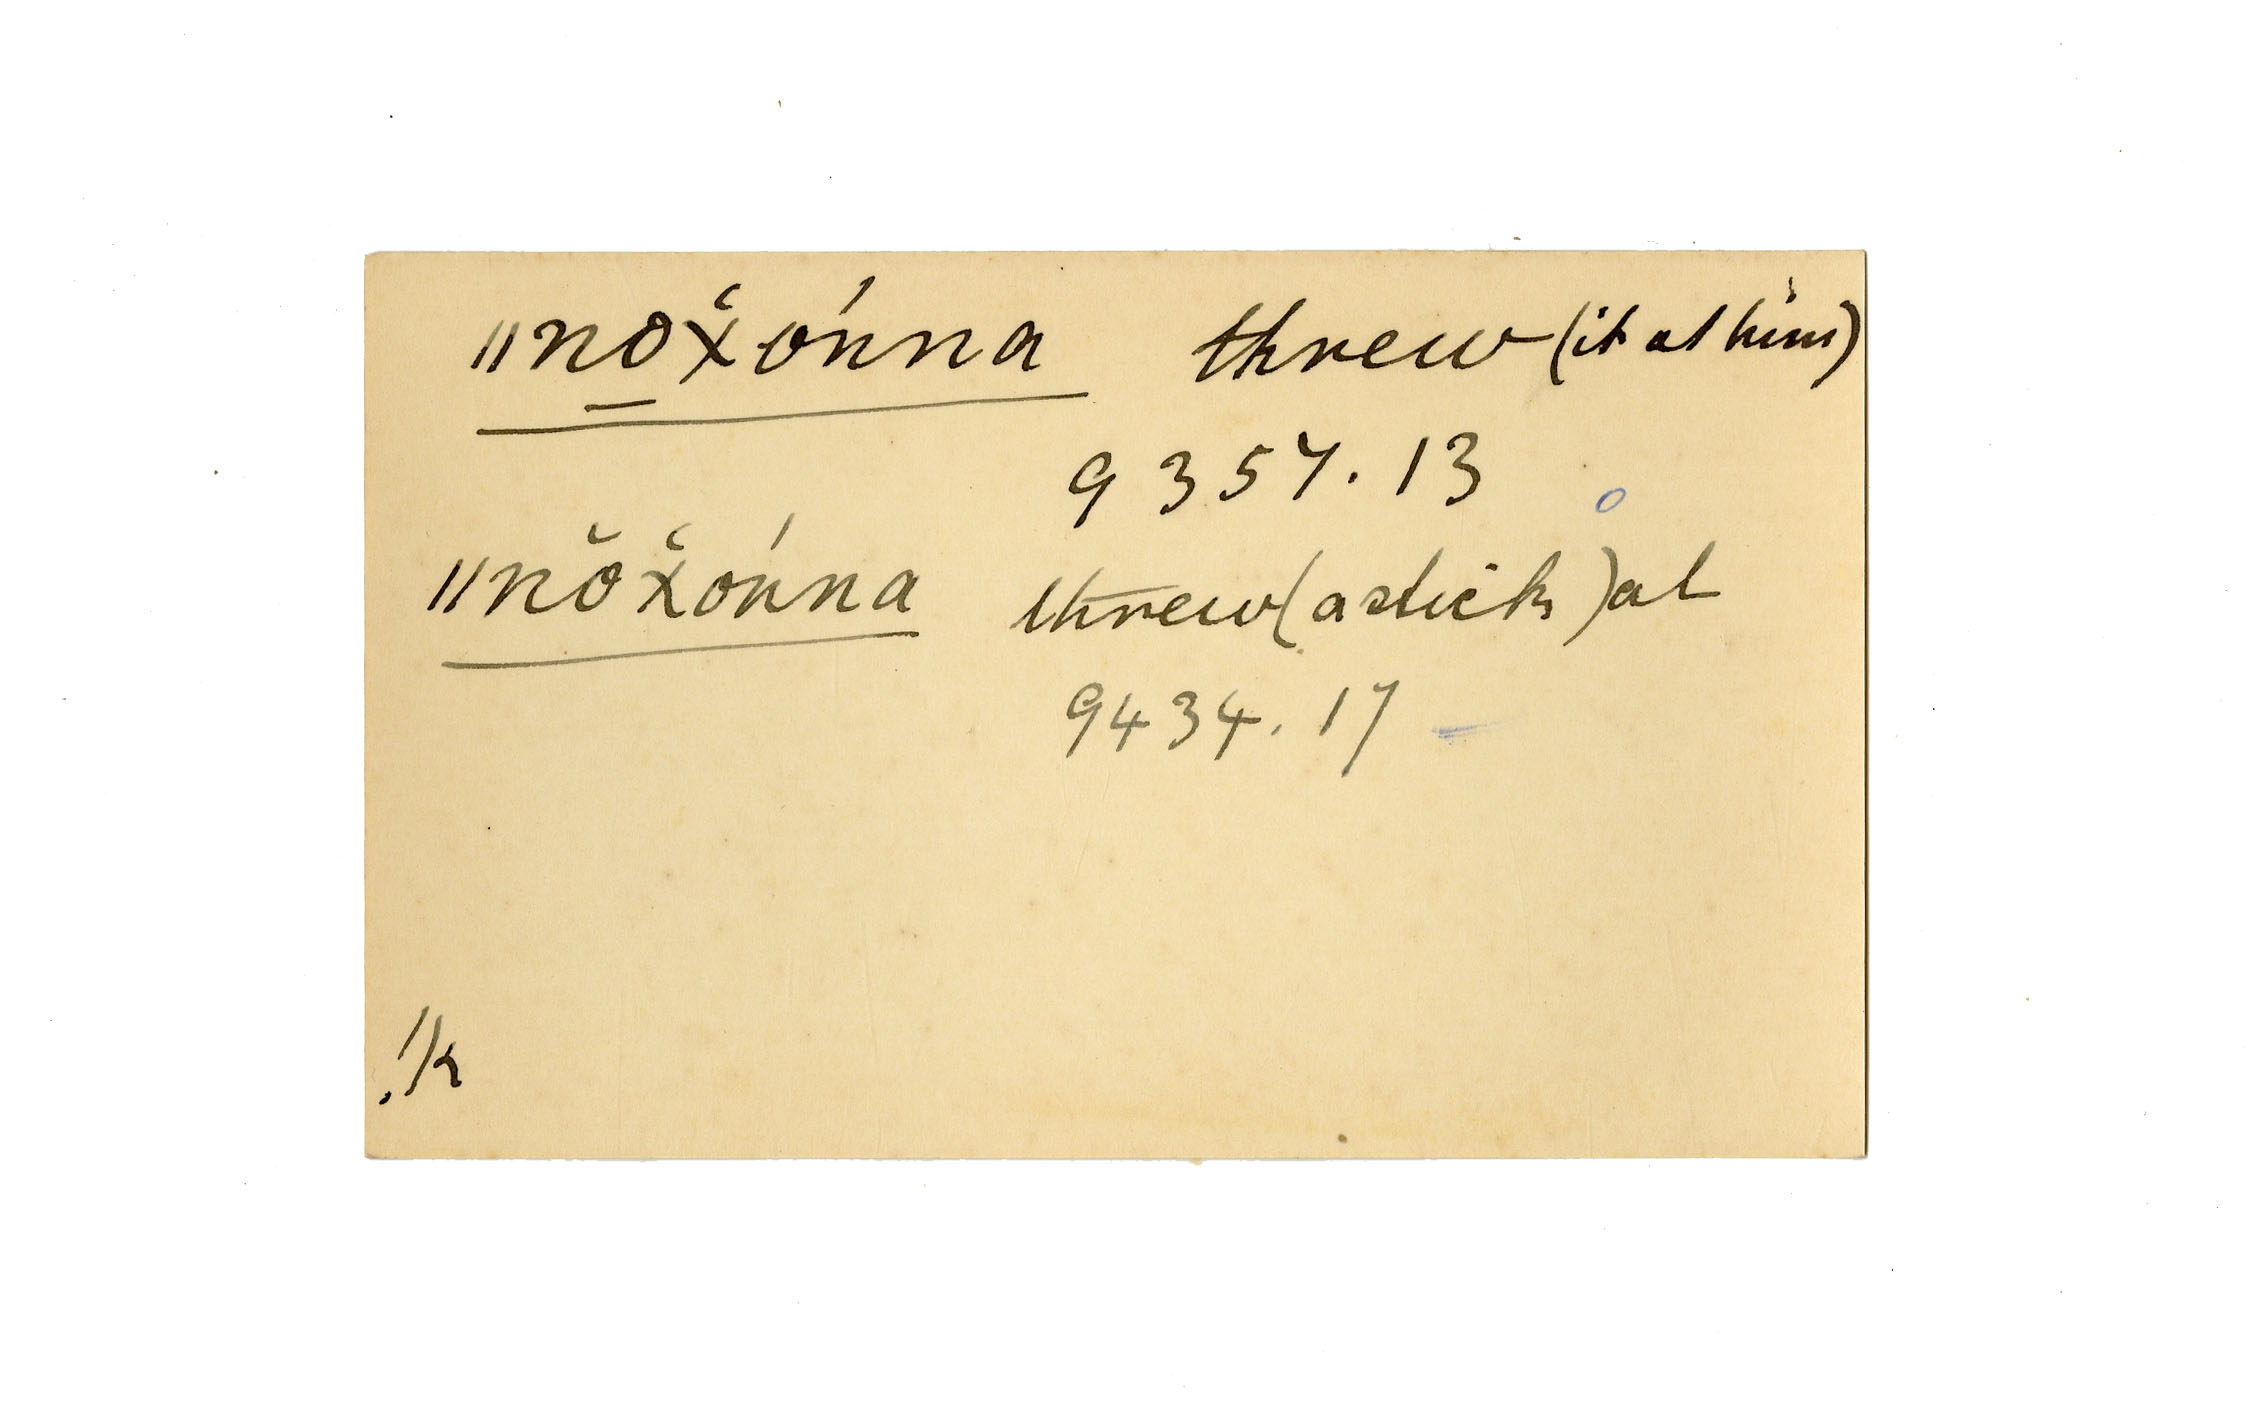 ǁno̱χ̌ónna threw (it at him)
9357.13
ǁnŏχ̌ónna threw (a stick) at
9434.17
!k